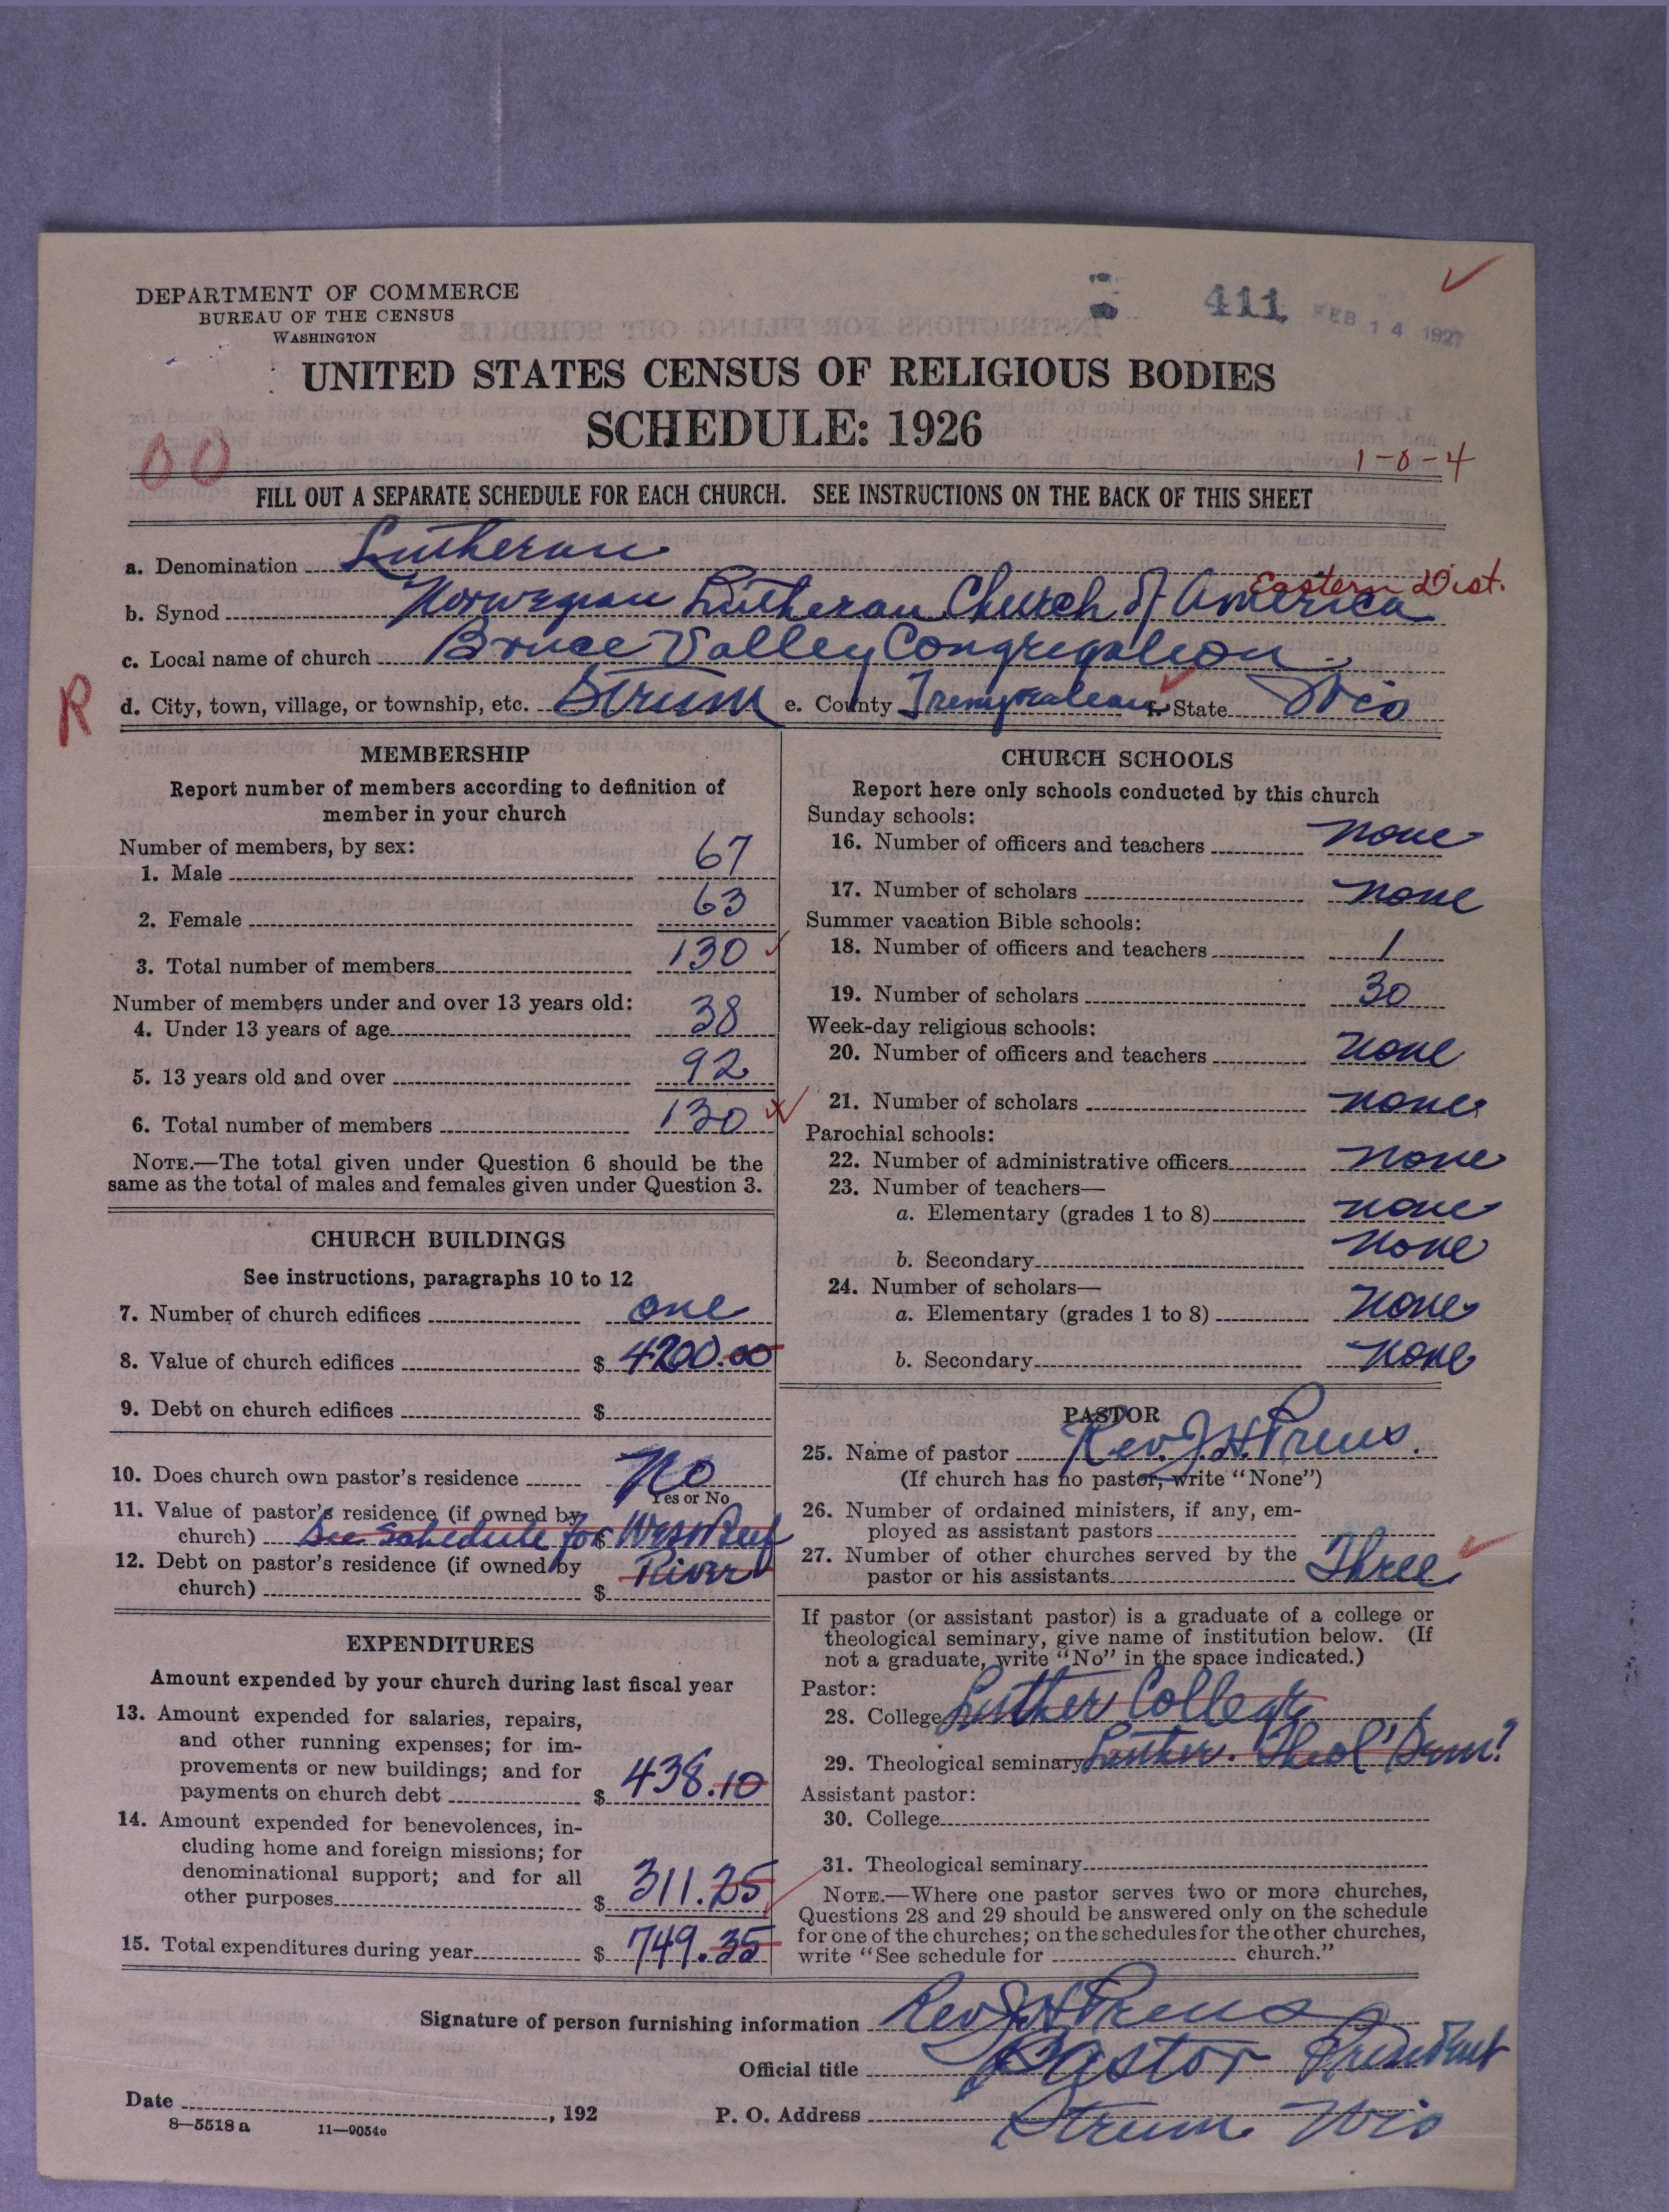 DEPARTMENT OF COMMERCE
BUREAU OF THE CENSUS
WASHINGTON
411 FEB 14 1927
UNITED STATES CENSUS OF RELIGIOUS BODIES
SCHEDULE: 1926
00
1-0-4
FILL OUT A SEPARATE SCHEDULE FOR EACH CHURCH. SEE INSTRUCTIONS ON THE BACK OF THIS SHEET
a. Denomination Lutheran
Eastern Dist.
b. Synod Norwegian Lutheran Church of America
c. Local name of church Bruce Valley Congregation
R
d. City, town, village, or township, etc. Strum e. County Trempealeau f. State Wis
MEMBERSHIP
Report number of members according to definition of
member in your church
Number of members, by sex:
1. Male 67
2. Female 63
3. Total number of members 130
Number of members under and over 13 years old:
4. Under 13 years of age 38
5. 13 years old and over 92
6. Total number of members 130
NOTE.—The total given under Question 6 should be the
same as the total of males and females given under Question 3.
CHURCH BUILDINGS
See instructions, paragraphs 10 to 12
7. Number of church edifices one
8. Value of church edifices $ 4200.00
9. Debt on church edifices $
10. Does church own pastor's residence No
Yes or No
11. Value of pastor's residence (if owned by
church) See Schedule for $ West Beef
12. Debt on pastor's residence (if owned by River
church) $
EXPENDITURES
Amount expended by your church during last fiscal year
13. Amount expended for salaries, repairs,
and other running expenses; for im-
provements or new buildings; and for
payments on church debt $ 438.10
14. Amount expended for benevolences, in-
cluding home and foreign missions; for
denominational support; and for all
other purposes $ 311.25
15. Total expenditures during year $ 749.35
CHURCH SCHOOLS
Report here only schools conducted by this church
Sunday schools:
16. Number of officers and teachers none
17. Number of scholars none
Summer vacation Bible schools:
18. Number of officers and teachers 1
19. Number of scholars 30
Week-day religious schools:
20. Number of officers and teachers none
21. Number of scholars none
Parochial schools:
22. Number of administrative officers none
23. Number of teachers—
a. Elementary (grades 1 to 8) none
b. Secondary none
24. Number of scholars—
a. Elementary (grades 1 to 8) none
b. Secondary none
PASTOR
25. Name of pastor Rev. J. H. Preus.
(If church has no pastor, write "None")
26. Number of ordained ministers, if any, em-
ployed as assistant pastors
27. Number of other churches served by the
pastor or his assistants Three
If pastor (or assistant pastor) is a graduate of a college or
theological seminary, give name of institution below. (If
not a graduate, write "No" in the space indicated.)
Pastor:
28. College Luther College
29. Theological seminary Luther. Theol' Sem!
Assistant pastor:
30. College
31. Theological seminary
NOTE.—Where one pastor serves two or more churches,
Questions 28 and 29 should be answered only on the schedule
for one of the churches; on the schedules for the other churches,
write "See schedule for church."
Signature of person furnishing information Rev J H Preus
Official title Pastor President
Date , 192 P. O. Address Strum Wis
8—5518 a 11—9054c